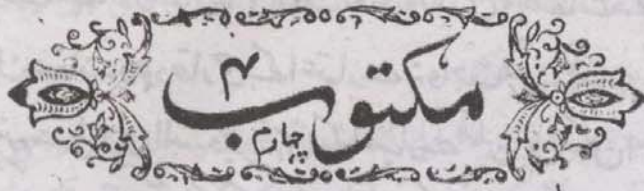 مکتوب ۴
چهارم